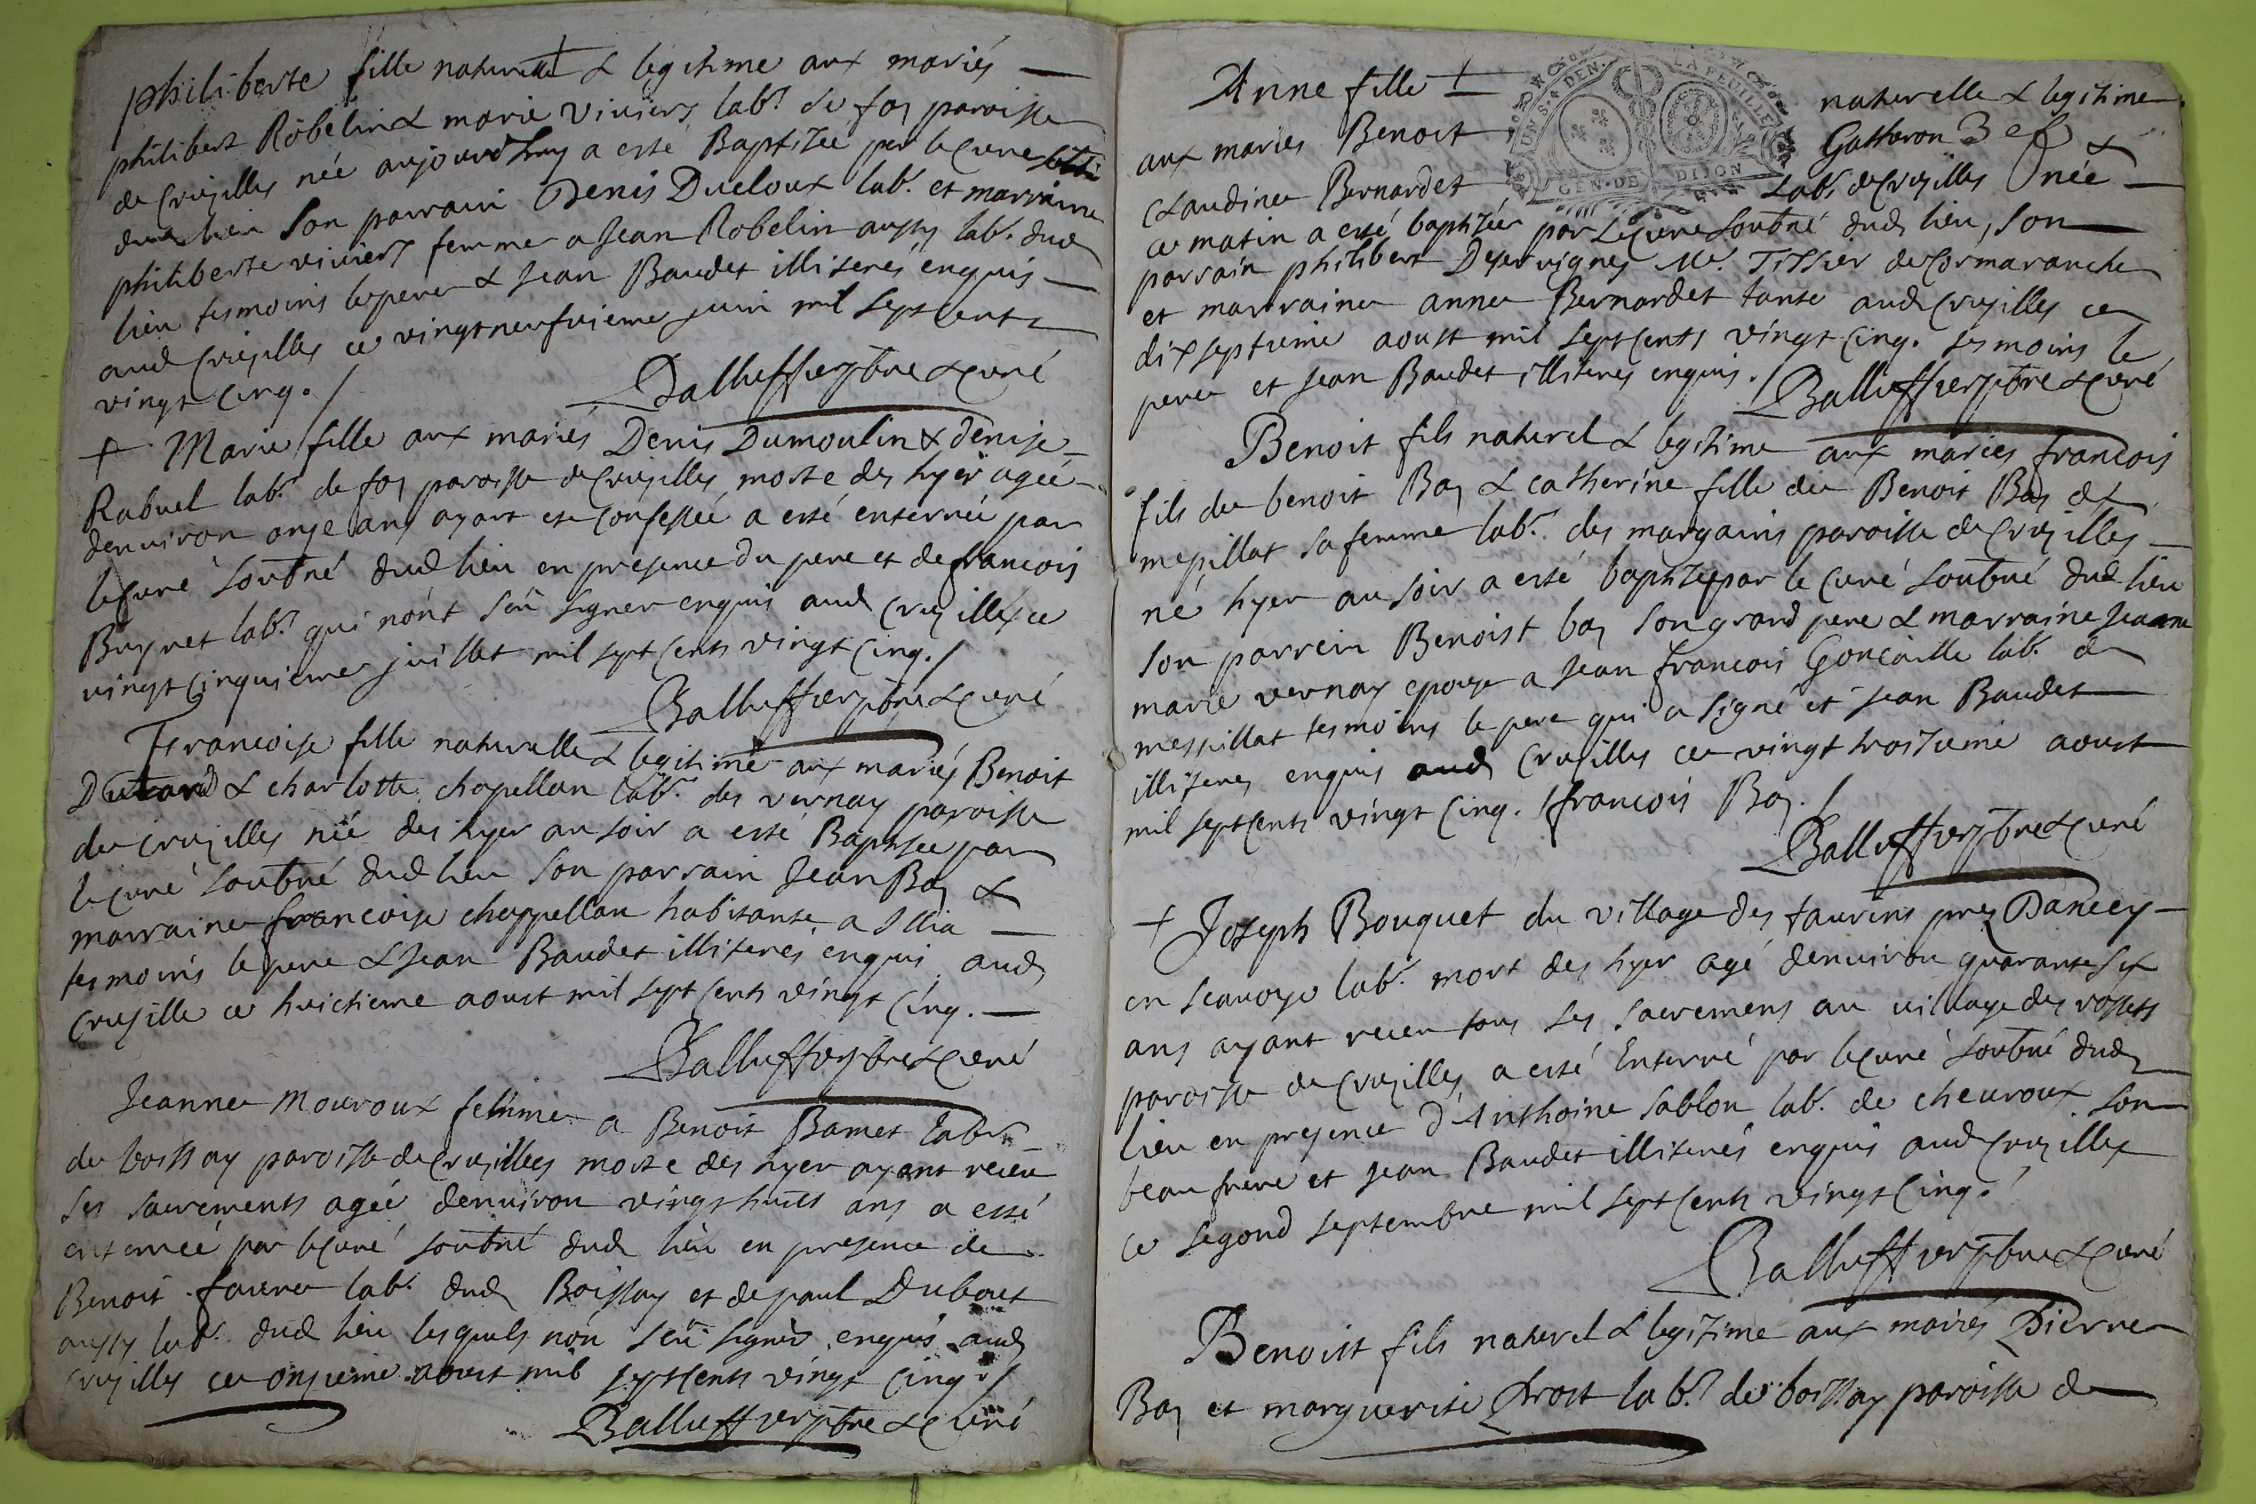 philiberte fille naturelle & legitime aux mariés
philibert Robelin & marie viviers lab.r de foy paroisse
de Cruzilles née aujourd'huy a esté Baptisée par le Curé
dud lieu son parrain Denis Ducloux lab.r et marraine
philiberte viviers femme a Jean Robelin aussy lab.r dud
lieu tesmoins le pere & Jean Baudet illiterés enquis
aud Cruzilles ce vingt neufvieme juin mil sept cents
vingt cinq./
Balluffier ptre & curé
+ Marie fille aux mariés Denis Dumoulin & denise
Rabuel lab.r de foy paroisse de Cruzilles morte des hyer agée
denviron onze ans ayant esté confessée a esté enterrée par
le curé soubné dud lieu en presence du pere et de francois
Buynet lab.r qui nont sçu signer enquis aud Cruzilles ce
vingt cinquieme juillet mil sept cents vingt cinq./
Balluffier ptre & curé
Francoise fille naturelle & legitime aux mariés Benoit
Dutard & charlotte chapellan lab.r des vernay paroisse
de cruzilles née des hyer au soir a esté Baptisée par
le curé soubné dud lieu son parrain Jean Boy &
marraine francoise chappellan habitante a Illia
tesmoins le pere & Jean Baudet illiterés enquis aud
Cruzille ce huictieme aoust mil sept cents vingt cinq.
Balluffier ptre & curé
Jeanne Mouroux femme a Benoit Bamet lab.r
de boissay paroisse de Cruzilles morte des hyer ayant receu
ses sacrements agée denviron vingt huict ans a esté
enterrée par le curé soubné dud lieu en presence de
Benoit favre lab.r dud Boissay et de paul Dubout
aussy lab.r dud lieu lesquels non sçu signer enquis aud
cruzilles ce onzieme aoust mil sept cents vingt cinq./
Balluffier ptre & curé
Anne fille naturelle & legitime
aux mariés Benoit Gatheron &
claudine Bernardet lab.r de Cruzilles née
ce matin a esté baptisée par le curé soubné dud lieu, son
parrain philibert Desevignes M.e Tissier de Cormaranche
et marraine anne Bernardet tante aud Cruzilles ce
dix septieme aoust mil sept cents vingt cinq. tesmoins le
pere et Jean Baudet illiterés enquis./ Balluffier ptre & curé
Benoit fils naturel & legitime aux mariés francois
fils de benoit Boy & catherine fille de Benoit Boy de
mezillat sa femme lab.r des margains paroisse de Cruzilles
né hyer au soir a esté baptizé par le curé soubné dud lieu
son parrein Benoist boy son grand pere & marraine Jeanne
marie vernay epouse a Jean francois Goncaille lab.r de
messillat tesmoins le pere qui a signé et Jean Baudet
illiterés enquis aud Cruzilles ce vingt troisieme aoust
mil sept cents vingt cinq. / francois Boy./
Balluffier ptre & curé
+ Joseph Bouquet du village des taurins pres Dancey
en seavoye lab.r mort des hyer agé denviron quarante six
ans ayant receu tous ses sacremens au village des rossets
paroisse de Cruzilles a esté Enterré par le curé soubné dud
lieu en presence d'Anthoine sablon lab.r de chevroux son
beau frere et Jean Baudet illiterés enquis aud Cruzilles
ce segond septembre mil sept cents vingt cinq./
Balluffier ptre & curé
Benoist fils naturel & legitime aux mariés Pierre
Boy et marguerite Prost lab.r de boissay paroisse de